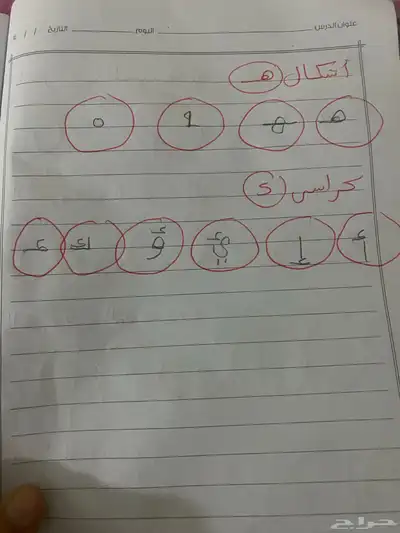 عنوان الدرس اليوم التاريخ / / ١٤
أشكال (هـ)
هـ ـهـ ـه ه
كراسي (ء)
أ إ ئ ؤ ء
حراج